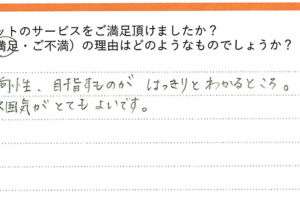 ットのサービスをご満足頂けましたか？
満足・ご不満）の理由はどのようなものでしょうか？
向性、目指すものが はっきりとわかるところ。
囲気がとてもよいです。